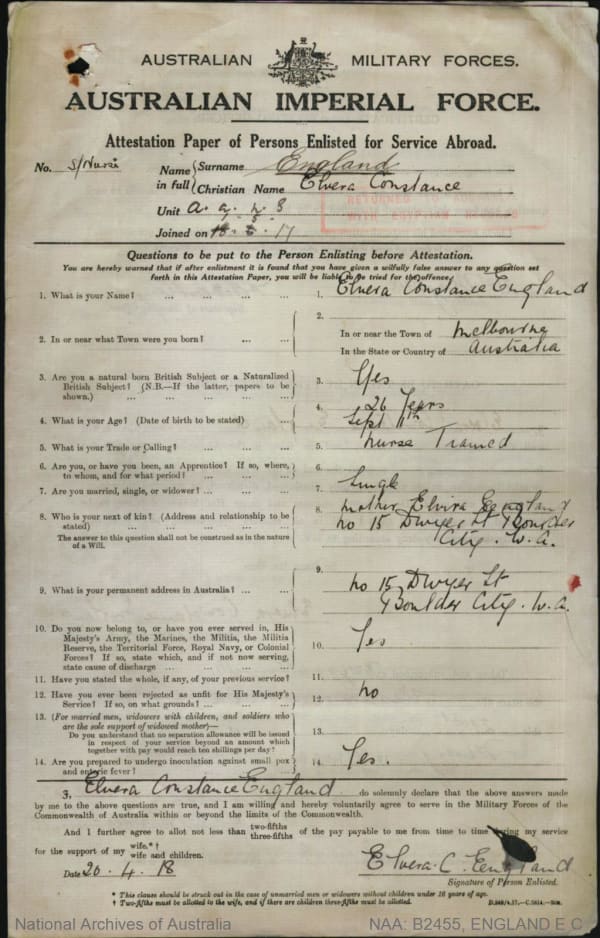 AUSTRALIAN MILITARY FORCES.
AUSTRALIAN IMPERIAL FORCE.
Attestation Paper of Persons Enlisted for Service Abroad.
No. S/Nurse
Name in full { Surname England
Christian Name Elvera Constance
Unit A. A. N. S
Joined on 17
RETURNED TO
WITH EGYPTIAN RECORDS
Questions to be put to the Person Enlisting before Attestation.
You are hereby warned that if after enlistment it is found that you have given a wilfully false answer to any question set
forth in this Attestation Paper, you will be liable to be tried for the offence.
1. What is your Name? ... ... ... 1. Elvera Constance England
2. In or near what Town were you born? ... ... 2. In or near the Town of Melbourne
In the State or Country of Australia
3. Are you a natural born British Subject or a Naturalized
British Subject? (N.B.—If the latter, papers to be
shown.) ... ... ... ... 3. Yes
4. What is your Age? (Date of birth to be stated) ... 4. 26 Years
Sept 11th
5. What is your Trade or Calling? ... ... ... 5. Nurse Trained
6. Are you, or have you been, an Apprentice? If so, where,
to whom, and for what period? ... ... ... 6.
7. Are you married, single, or widower? ... ... ... 7. Single
8. Who is your next of kin? (Address and relationship to be
stated) ... ... ... ...
The answer to this question shall not be construed as in the nature
of a Will.
8. Mother Elvira England
No 15 Dwyer St Boulder
City. W.A.
9. What is your permanent address in Australia? ... ... 9. No 15 Dwyer St
Boulder City. W.A.
10. Do you now belong to, or have you ever served in, His
Majesty's Army, the Marines, the Militia, the Militia
Reserve, the Territorial Force, Royal Navy, or Colonial
Forces? If so, state which, and if not now serving,
state cause of discharge ... ... ... 10. Yes
11. Have you stated the whole, if any, of your previous service? 11.
12. Have you ever been rejected as unfit for His Majesty's
Service? If so, on what grounds? ... ... ... 12. No
13. (For married men, widowers with children, and soldiers who
are the sole support of widowed mother)—
Do you understand that no separation allowance will be issued
in respect of your service beyond an amount which
together with pay would reach ten shillings per day? 13.
14. Are you prepared to undergo inoculation against small pox
and enteric fever? 14. Yes.
I, Elvera Constance England do solemnly declare that the above answers made
by me to the above questions are true, and I am willing and hereby voluntarily agree to serve in the Military Forces of the
Commonwealth of Australia within or beyond the limits of the Commonwealth.
And I further agree to allot not less than two-fifths three-fifths of the pay payable to me from time to time during my service
for the support of my wife.*† wife and children.
Date 20.4.18
Elvera. C. England
Signature of Person Enlisted.
* This clause should be struck out in the case of unmarried men or widowers without children under 16 years of age.
† Two-fifths must be allotted to the wife, and if there are children three-fifths must be allotted.
National Archives of Australia
NAA: B2455, ENGLAND E C